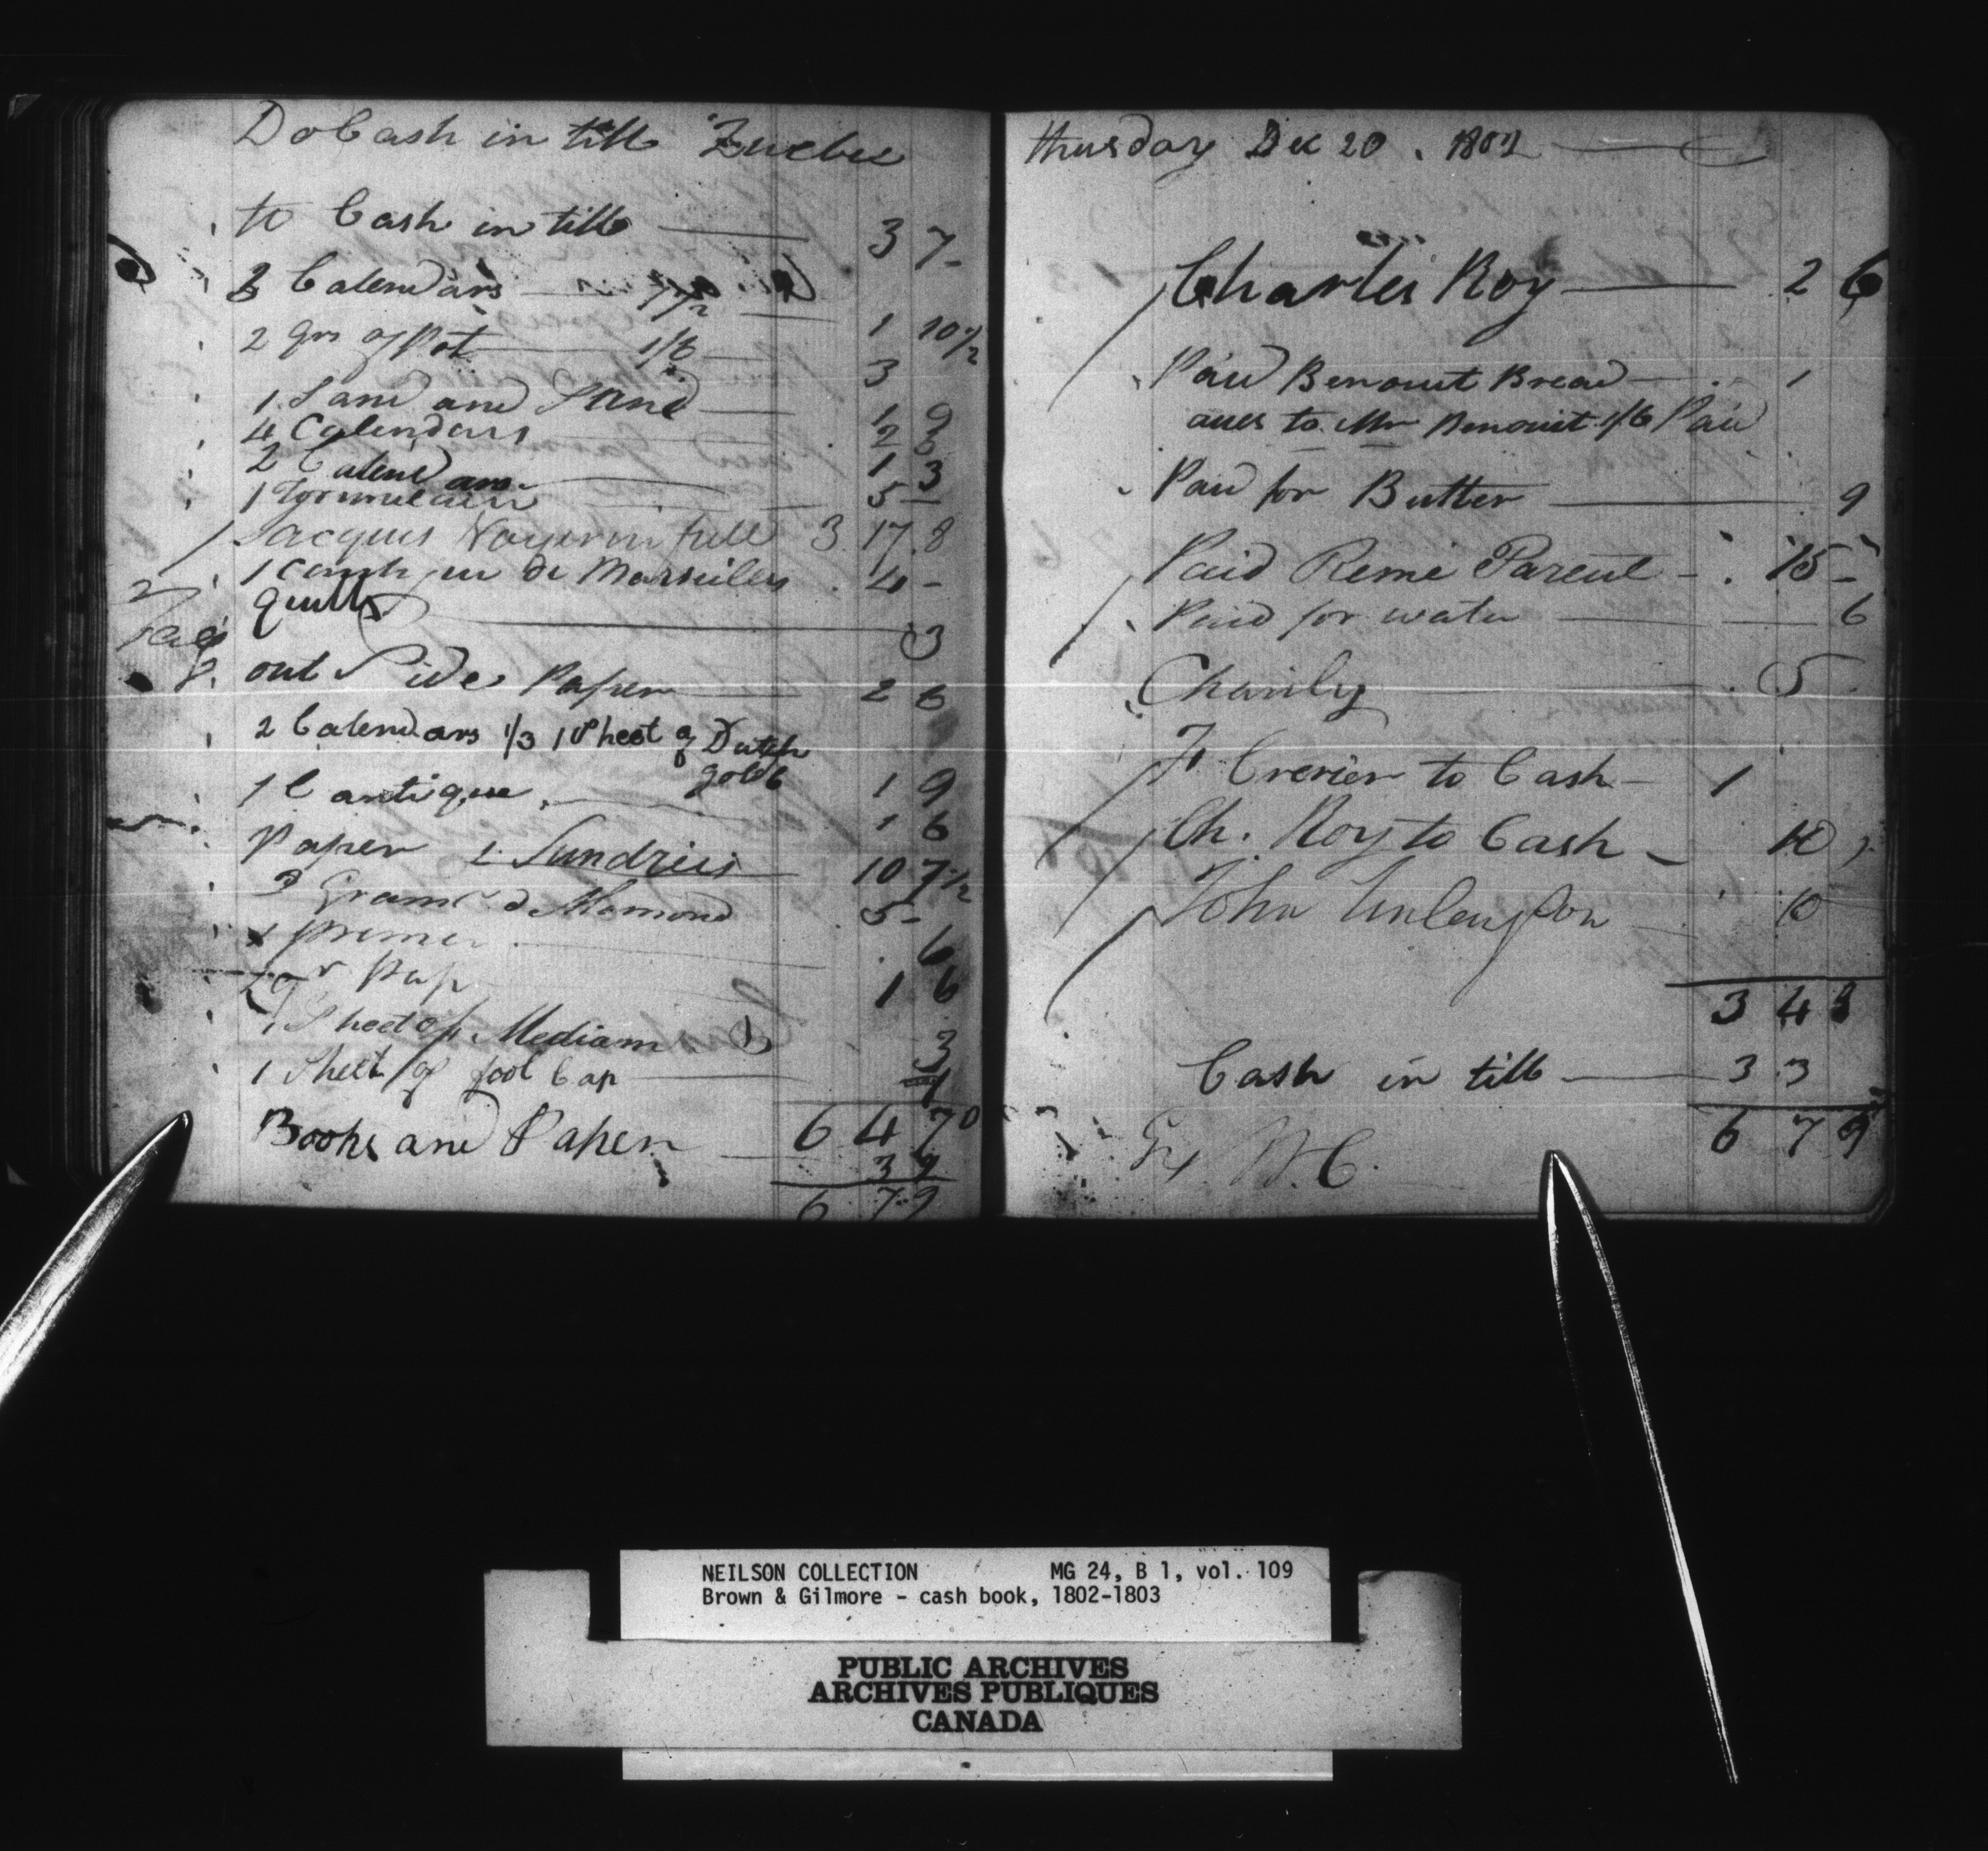 Do Cash in till Quebec
to Cash in till — 3 7 -
3 Calendars — 7½ — 1 10½
2 qrs of Pot — 1/6 — 3
1 Sand and Sand — 1 9
4 Calendars 2 6
2 Calendars 1 3
1 Formulaire 5 —
Jacques Voyer in full 3 17 8
1 Cantique de Marseilles 4 -
quills — 3
out Side Paper — 2 6
2 Calendars 1/3 1 Sheet of Dutch
gold 6 1 9
1 Cantique 1 6
Paper & Sundries 10 7½
3 Gram 5 -
1 primer 6
Pap 1 6
1 Sheet of Mediam 3
1 Sheet of fool Cap — 1
6 4 7
Books and Paper — 3 2
6 7 9
Thursday Dec 20. 1802
Charles Roy — 2 6
Paid Benouit Bread — 1
to Mr Benouit 1/6 Paid
Paid for Butter — 9
Paid Remi Parent — 15 -
Paid for water — 6
Charity 5
Fr Crerier to Cash — 1
Ch. Roy to Cash — 10
John 10
3 4 9
Cash in till — 3 3
6 7 9
NEILSON COLLECTION MG 24, B 1, vol. 109
Brown & Gilmore - cash book, 1802-1803
PUBLIC ARCHIVES
ARCHIVES PUBLIQUES
CANADA